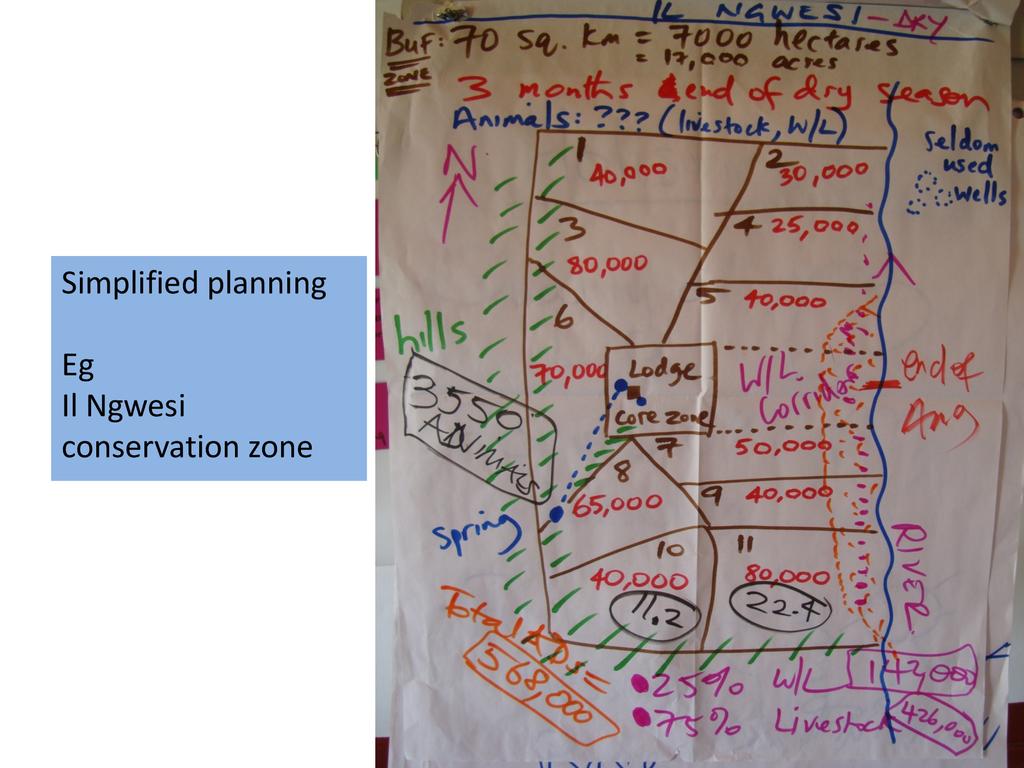 Simplified planning
Eg
Il Ngwesi
conservation zone
IL NGWESI - DRY
Buf: 70 sq. km = 7000 hectares
ZONE
= 17,000 acres
3 months end of dry season
Animals: ??? (livestock, W/L)
Seldom
used
wells
N
1
40,000
2
30,000
3
80,000
4 25,000
5
40,000
6
70,000
hills
Lodge
core zone
W/L
Corridor
end of
Aug
3550
ANIMALS
7
50,000
8
65,000
9 40,000
spring
10
40,000
11
80,000
11.2
22.4
RIVER
Total ADs =
568,000
25% W/L 142,000
75% Livestock 426,000